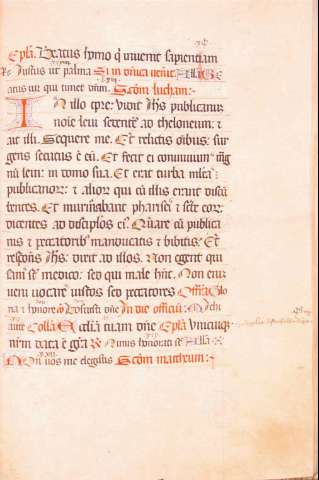 Epl̃a. Beatus homo q̇ inuenit sapientiam
Iustus ut palma Si in dñica uenit. All̃a Be
atus uir qui timet dñm. Scd̃m lucham:
In illo tp̃re: vidit ih̃s publicanum
noie leui sedentẽ ad theloneum: et
ait illi. Sequere me. Et relictis oĩbus: sur
gens secutus ẽ eũ. Et fecit ei conuiuium mãg
nũ leui: in domo sua. Et erat turba mlta
publicanoꝝ: et alioꝝ qui cũ illis erant discũ
bentes. Et murmũrabant pharisei et scribe eoꝝ:
dicentes ad discipl̃os ei: Quare cũ publica
nis et peccatoribꝰ manducatis et bibitis: Et
respõns ih̃s: dixit ad illos. Non egent qui
sani sũt medico: sed qui male hñt. Non enim
ueni uocare iustos sed peccatores Offr̃a Glo
ria et honore Co Posuisti dñe In die officiũ: Michi
autẽ Coll̃a dñe Epl̃a Vnicuiqꝫ
nr̃m data ẽ gr̃a Nimis honorati sũt All̃a
Non uos me elegistis Scd̃m matheum: